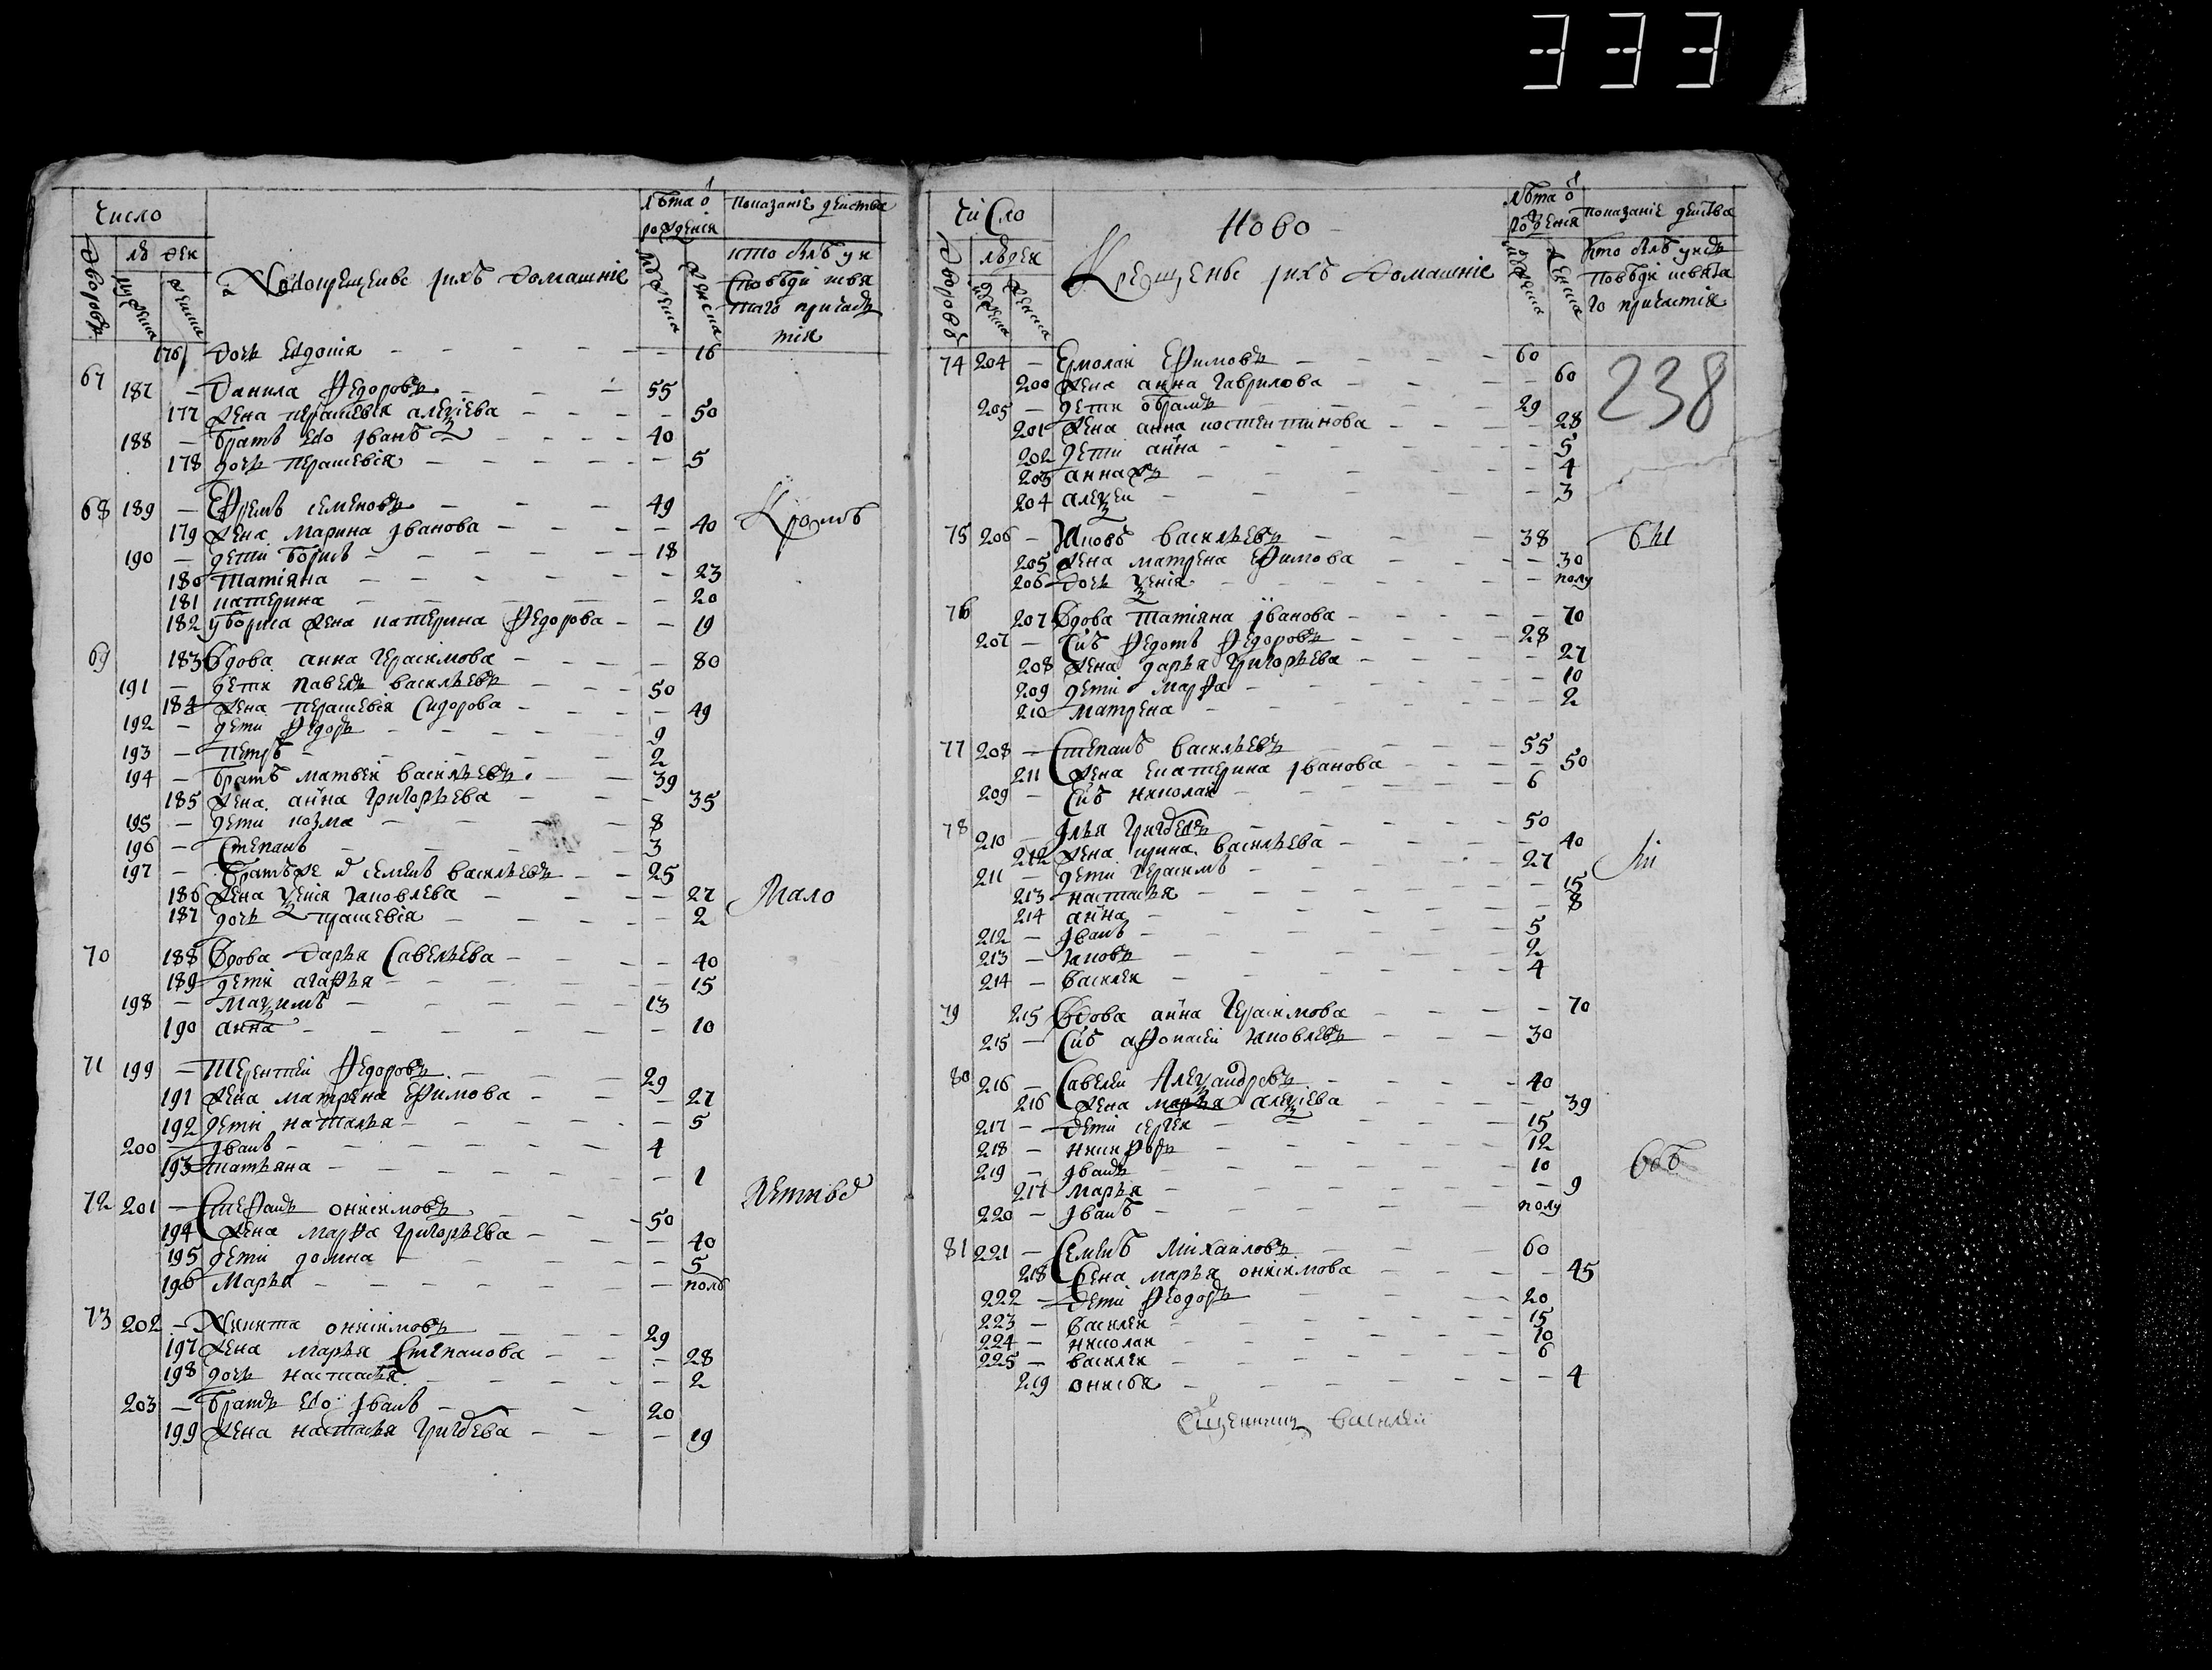 333
Число
лѣта о
рожденія
показаніе действа
Дворовъ
лю дей
мужеска
женска
Новокрещеные ихъ домашніе
мужеска
женска
кто былъ у и
споведи и свя
таго причас
тия
176 дочь Евдокія 16
67 187 Данила Федоровъ 55
177 жена перасковія алексіева 50
188 братъ Ево Іванъ 40
178 дочь перасковія 5
68 189 Ефремъ семеновъ 49
179 жена Марина Іванова 40
Кромѣ
190 дети борисъ 18
180 Татіяна 23
181 катерина 20
182 у бориса жена катерина Федорова 19
69 183 Вдова анна герасимова 80
191 дети павелъ васильевъ 50
184 жена перасковія Сидорова 49
192 дети Федоръ 9
193 петръ 2
194 братъ матвей васильевъ 39
185 жена анна григорьева 35
195 дети козма 8
196 Степанъ 3
197 братъ же семенъ васильевъ 25
186 жена ксенія яковлева 27
Мало
187 дочь прасковія 2
70 188 Вдова Дарья Савельева 40
189 дети агафья 15
198 Максимъ 13
190 анна 10
71 199 Терентей Федоровъ 29
191 жена матрена Ефимова 27
192 дети наталья 5
200 Іванъ 4
193 татьяна 1
летныхъ
72 201 Стефанъ онисимовъ 50
194 жена Марфа григорьева 40
195 дети домна 5
196 Марья полъ
73 202 Никита онисимовъ 29
197 жена Марья Степанова 28
198 дочь настасья 2
203 братъ Ево Іванъ 20
199 жена настасья григорьева 19
чиСло
Ново
Крещеные ихъ Домашніе
лѣта о
рожденія
показаніе действа
Дворовъ
людей
мужеска
женска
мужеска
женска
кто былъ у ис
поведи и свята
го причастия
74 204 Ермолай Ефимовъ 60
238
200 жена анна гаврилова 60
205 дети абрамъ 29
201 жена анна костентинова 28
202 дети анна 5
203 анна ж 4
204 алексей 3
75 206 Яковъ васильевъ 38
бы
205 жена матрена Ефимова 30
206 дочь ксенія полу
76 207 Вдова татіяна іванова 70
207 Сынъ Федотъ Федоровъ 28
208 жена дарья григорьева 27
209 дети Марфа 10
210 матрена 2
77 208 Степанъ васильевъ 55
211 жена Екатерина Іванова 50
209 Сынъ николай 6
78 210 Ілья григорьевъ 50
212 жена ирина васильева 40
ли
211 дети герасимъ 27
213 настасья 15
214 анна 8
212 Іванъ 5
213 яковъ 2
214 василей 4
79 215 Вдова анна герасимова 70
215 Сынъ афонасей яковлевъ 30
80 216 Савелей Александровъ 40
216 жена марья алексіева 39
217 дети сергей 15
218 никифоръ 12
219 Іванъ 10
217 Марья 9
220 Іванъ полу
81 221 Семенъ Михаиловъ 60
218 жена марья онисимова 45
222 дети Феодоръ 20
223 василей 15
224 николай 10
225 василей 6
219 онисья 4
Священникъ василей